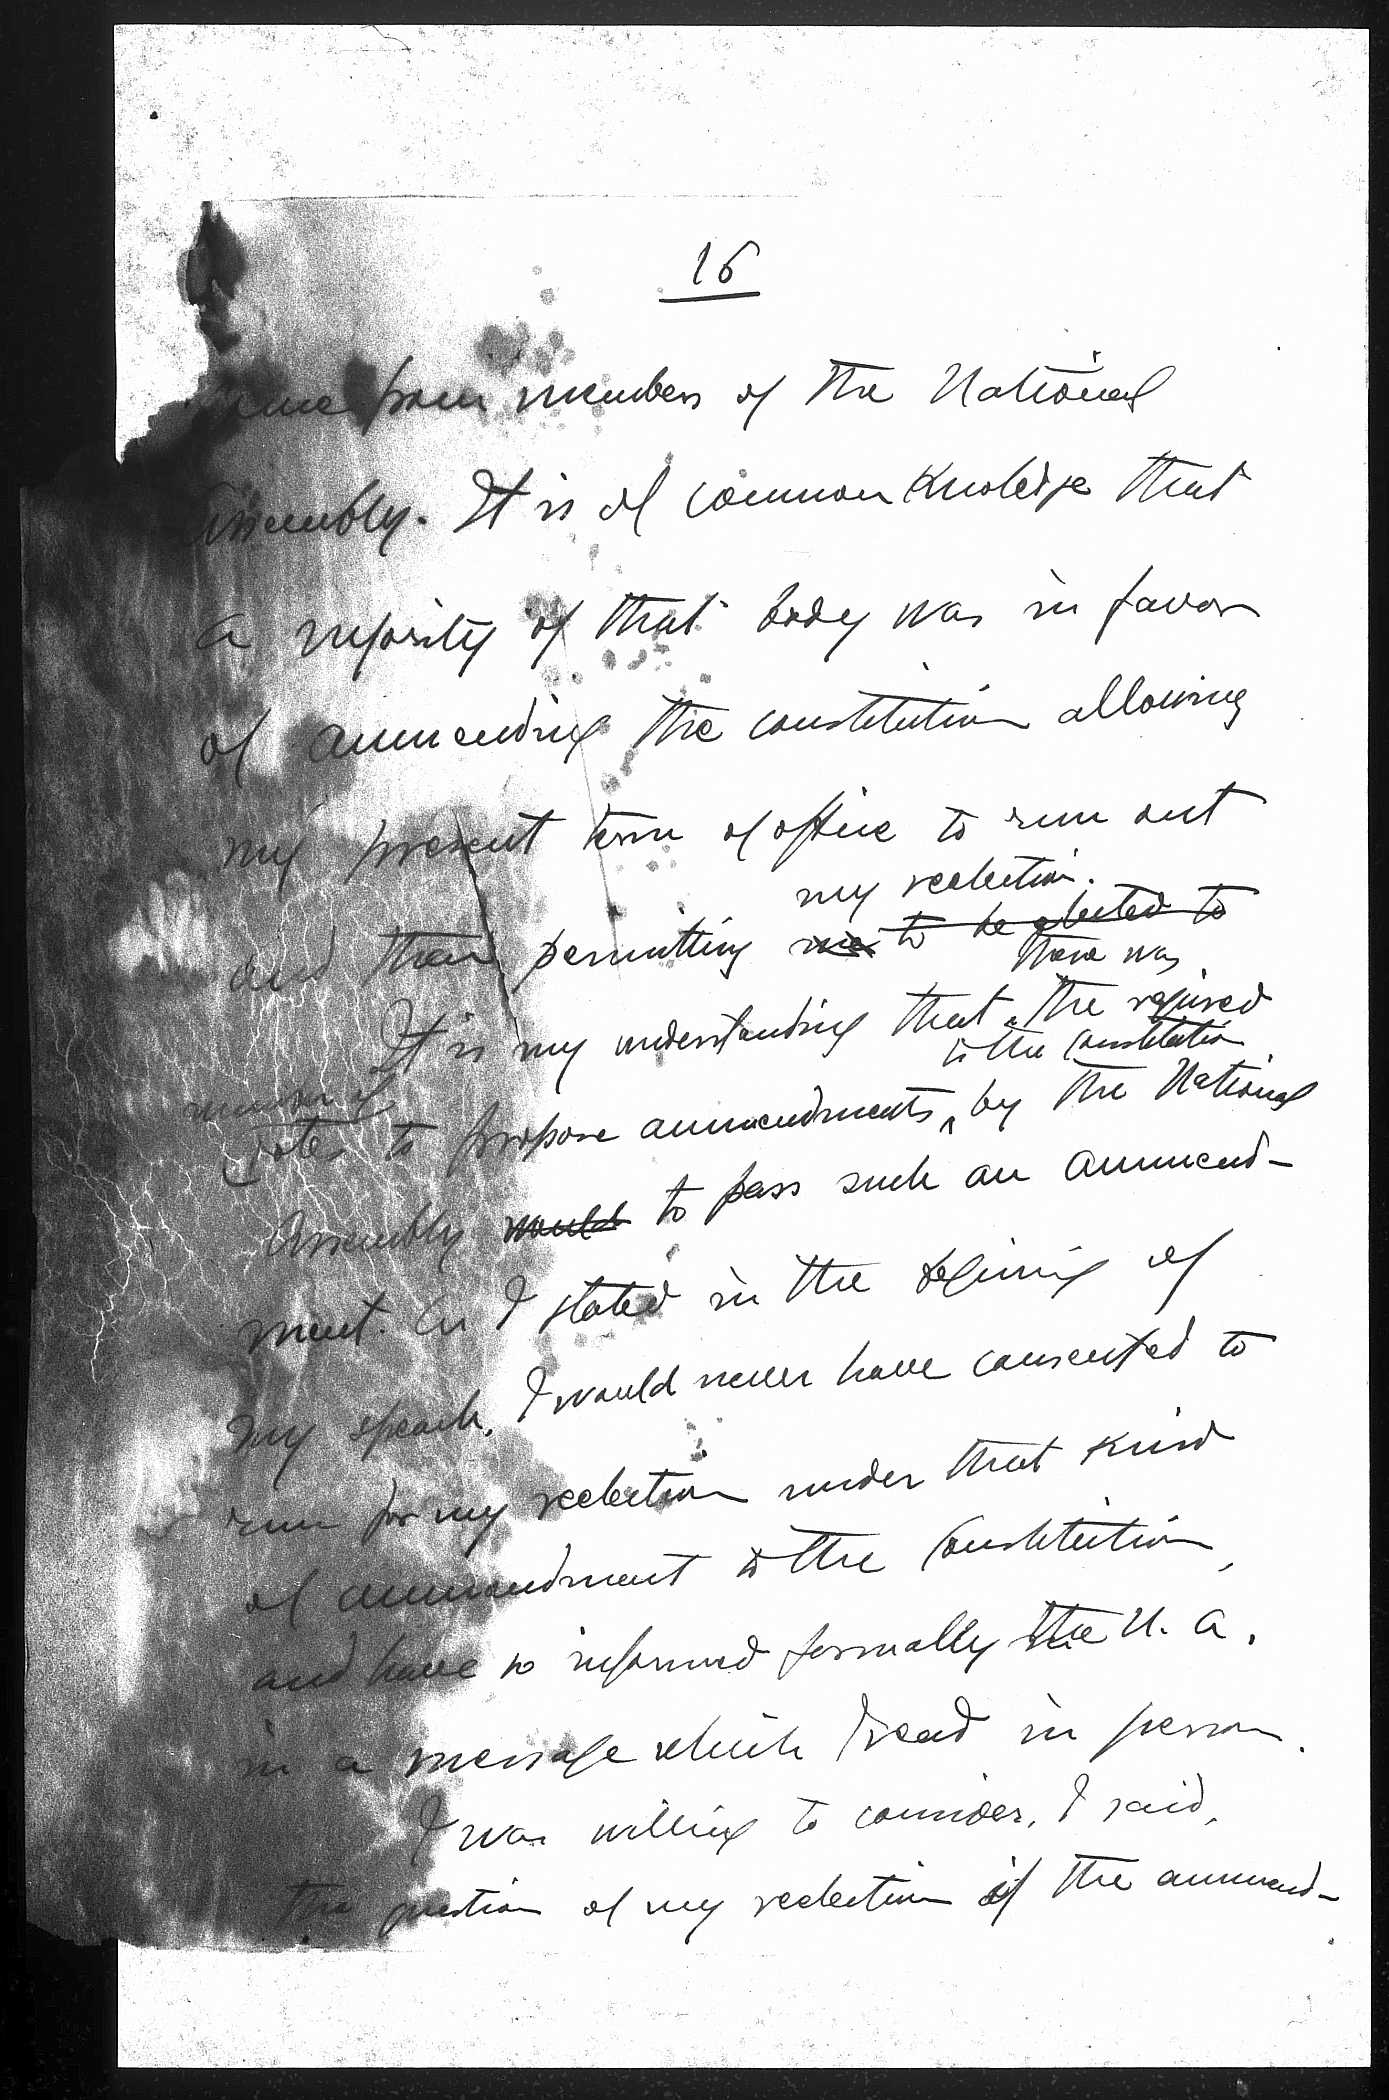 16
came from members of the National
Assembly. It is of common Knoledge that
a majority of that body was in favor
of ammending the constitution allowing
my present term of office to run out
my reelection.
and then permitting me to be elected to
there was
It is my understanding that the required
to the Constitution
votes to propose ammendments, by the National
Assembly would to pass such an ammend-
ment. As I stated in the begining of
my speach, I would never have consented to
run for my reelection under that Kind
of ammendment to the Constitution,
and have so informed formally the N. A.
in a message which I read in person.
I was willing to consider, I said,
the question of my reelection if the ammend-